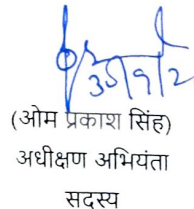 (ओम प्रकाश सिंह)
अधीक्षण अभियंता
सदस्य